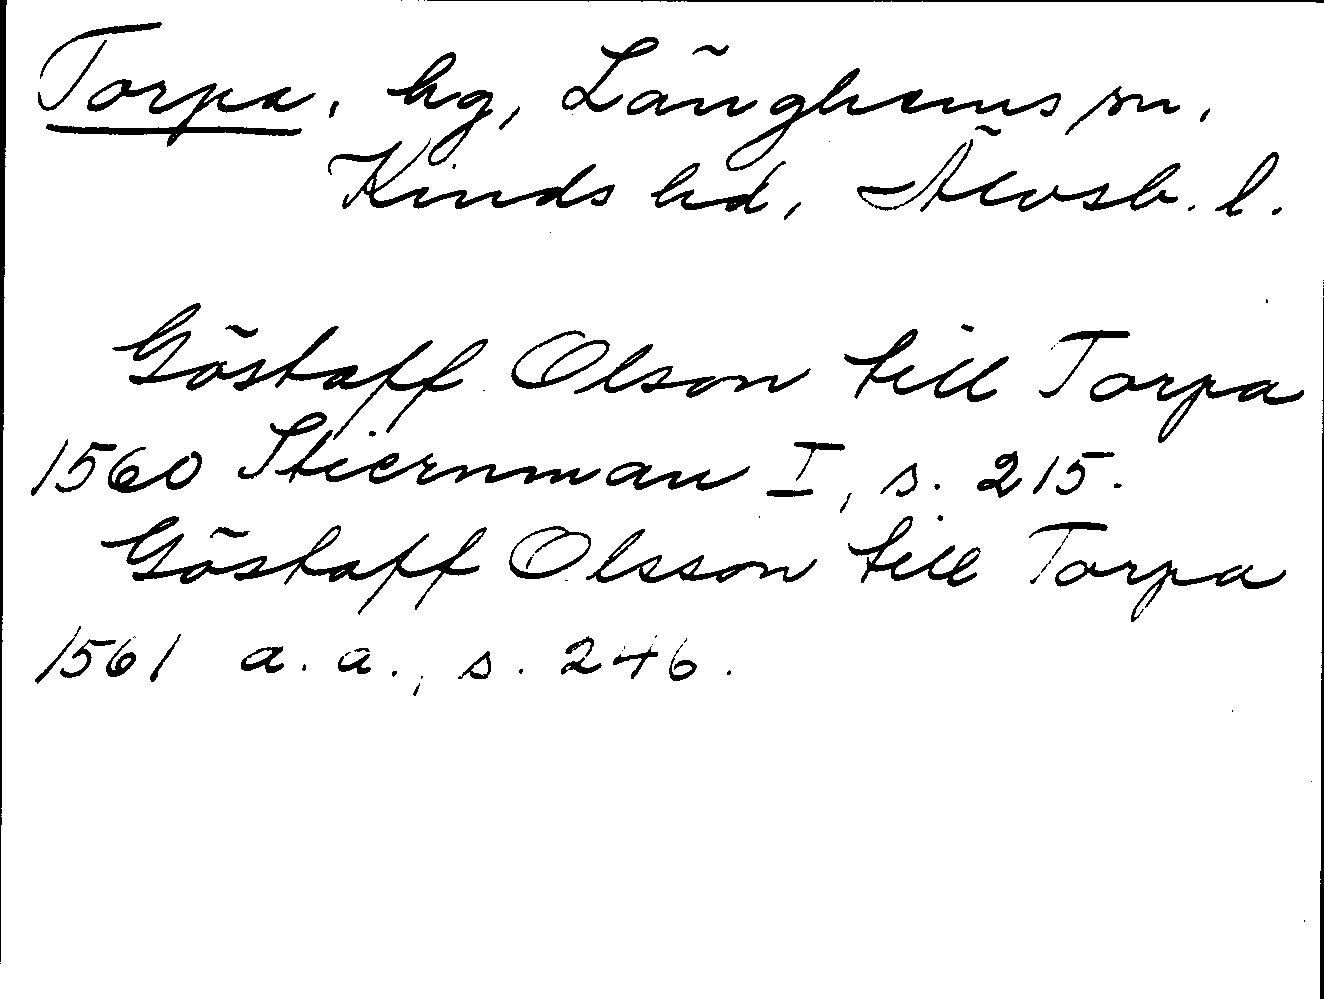 Torpa, hg, Länghems sn,
Kinds hd, Älvsb. l.
Göstaff Olson till Torpa
1560 Stiernman I, s. 215.
Göstaff Olsson till Torpa
1561 a. a., s. 246.